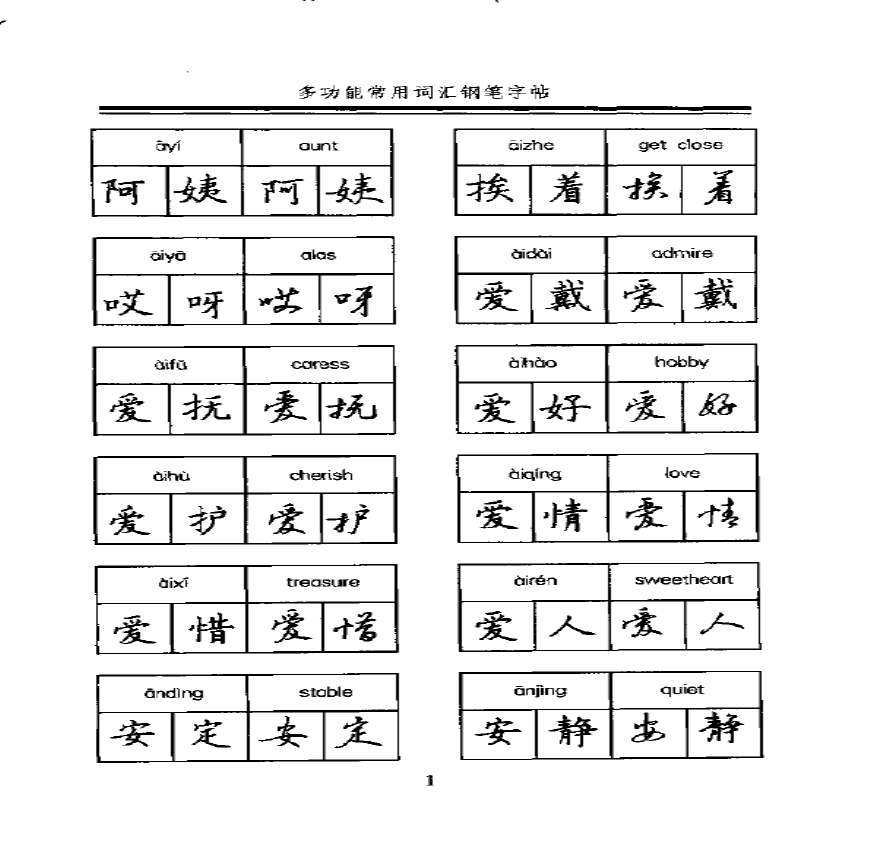 多功能常用词汇钢笔字帖
āyí aunt āizhe get close
阿姨 阿姨 挨着 挨着
āiyā alas àidài admire
哎呀 哎呀 爱戴 爱戴
àifǔ caress àihào hobby
爱抚 爱抚 爱好 爱好
àihù cherish àiqíng love
爱护 爱护 爱情 爱情
àixī treasure àirén sweetheart
爱惜 爱惜 爱人 爱人
āndìng stable ānjìng quiet
安定 安定 安静 安静
1